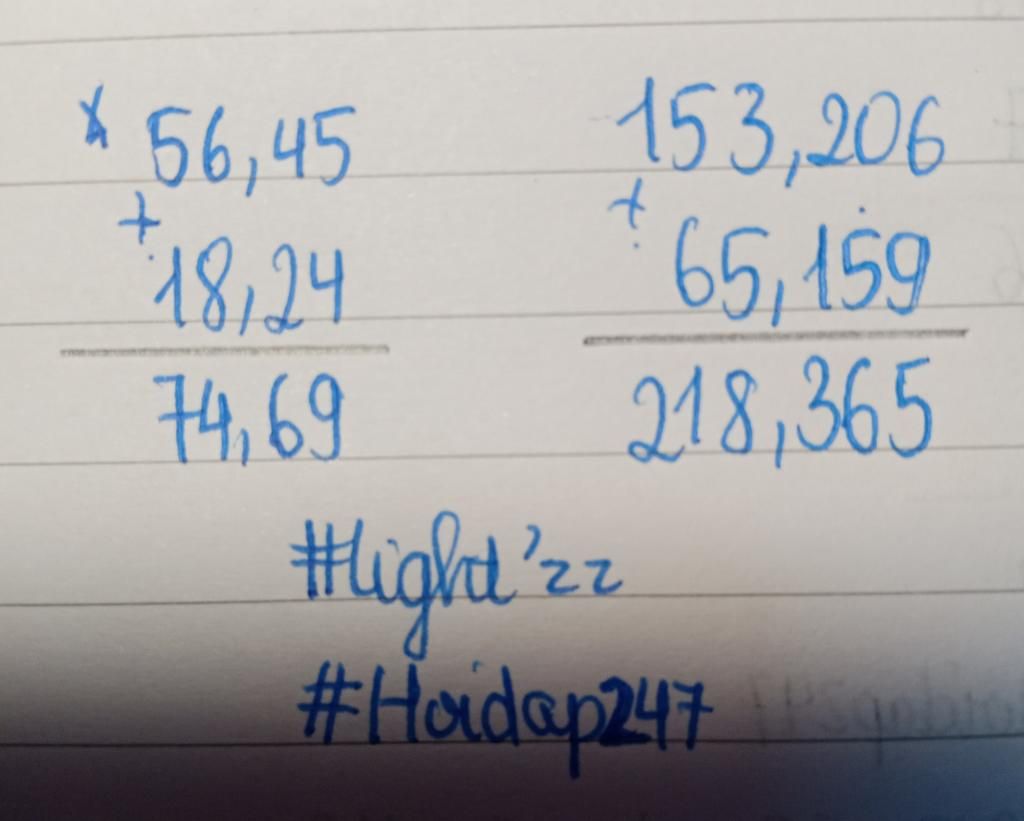 x 56,45
+
18,24
74,69
153,206
+
65,159
218,365
#light'zz
#Hoidap247